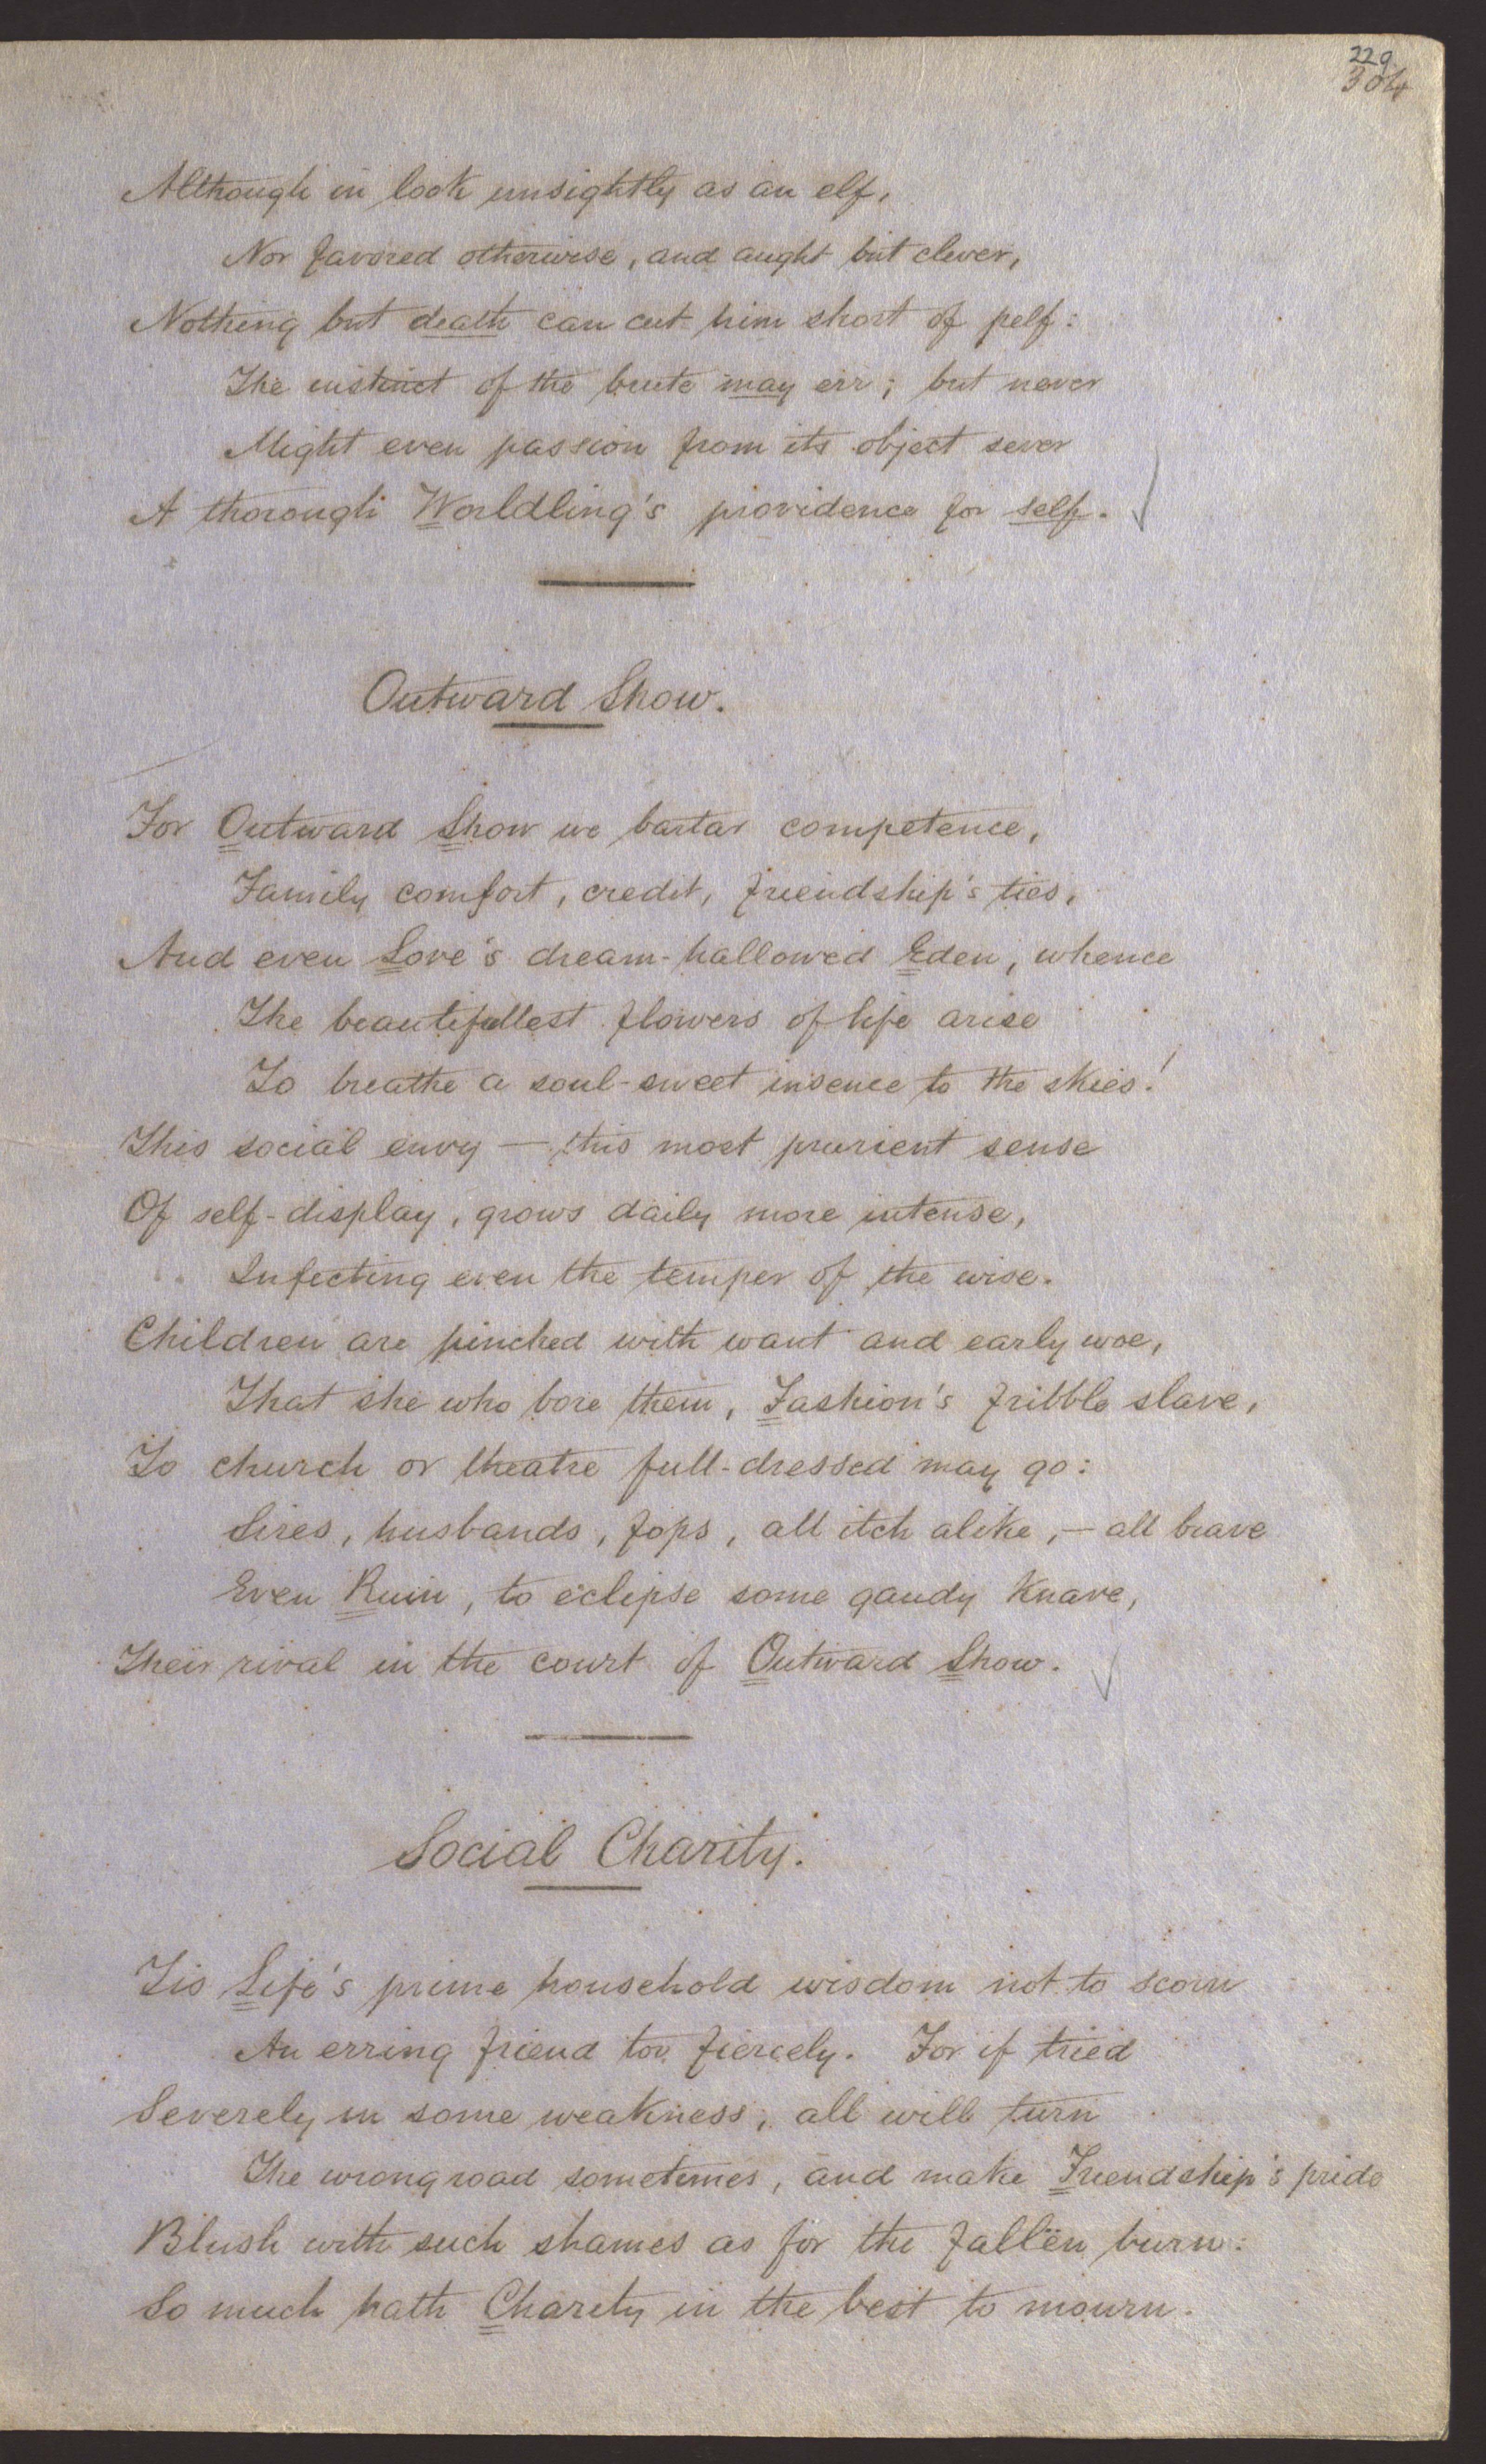 229
304
Although in look unsightly as an elf,
Nor favored otherwise, and aught but clever,
Nothing but death can cut him short of pelf:
The instinct of the brute may err; but never
Might even passion from its object sever
A thorough Worldling's providence for self.
Outward Show.
For Outward Show we bartar competence,
Family comfort, credit, friendship's ties,
And even Love's dream-hallowed Eden, whence
The beautifullest flowers of life arise
To breathe a soul-sweet insence to the skies!
This social envy — this most prurient sense
Of self-display, grows daily more intense,
Infecting even the temper of the wise.
Children are pinched with want and early woe,
That she who bore them, Fashion's fribble slave,
To church or theatre full-dressed may go:
Sires, husbands, fops, all itch alike, — all brave
Even Ruin, to eclipse some gaudy Knave,
Their rival in the court of Outward Show.
Social Charity.
Tis Life's prime household wisdom not to scorn
An erring friend too fiercely. For if tried
Severely in some weakness, all will turn
The wrong road sometimes, and make Friendship's pride
Blush with such shames as for the fallën burn:
So much hath Charity in the best to mourn.